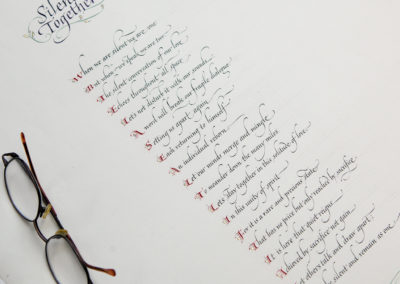 Silent
Together
When we are silent we are one
But when we speak we are two
The silent conversation of our love
Echoes throughout all space
Let's not disturb it with our sounds
A word will break our fragile dialogue
Setting us apart again
Each returning to himself
An individual reborn
Let our minds merge and mingle
To meander down the many miles
Let's stay together in this solitude of love
In this unity of spirit
For it is a rare and precious state
That has no price but only reached by sacrifice
It is here that quiet reigns
Achieved by sacrifice not gain
Let others talk and draw apart
silent and remain as one